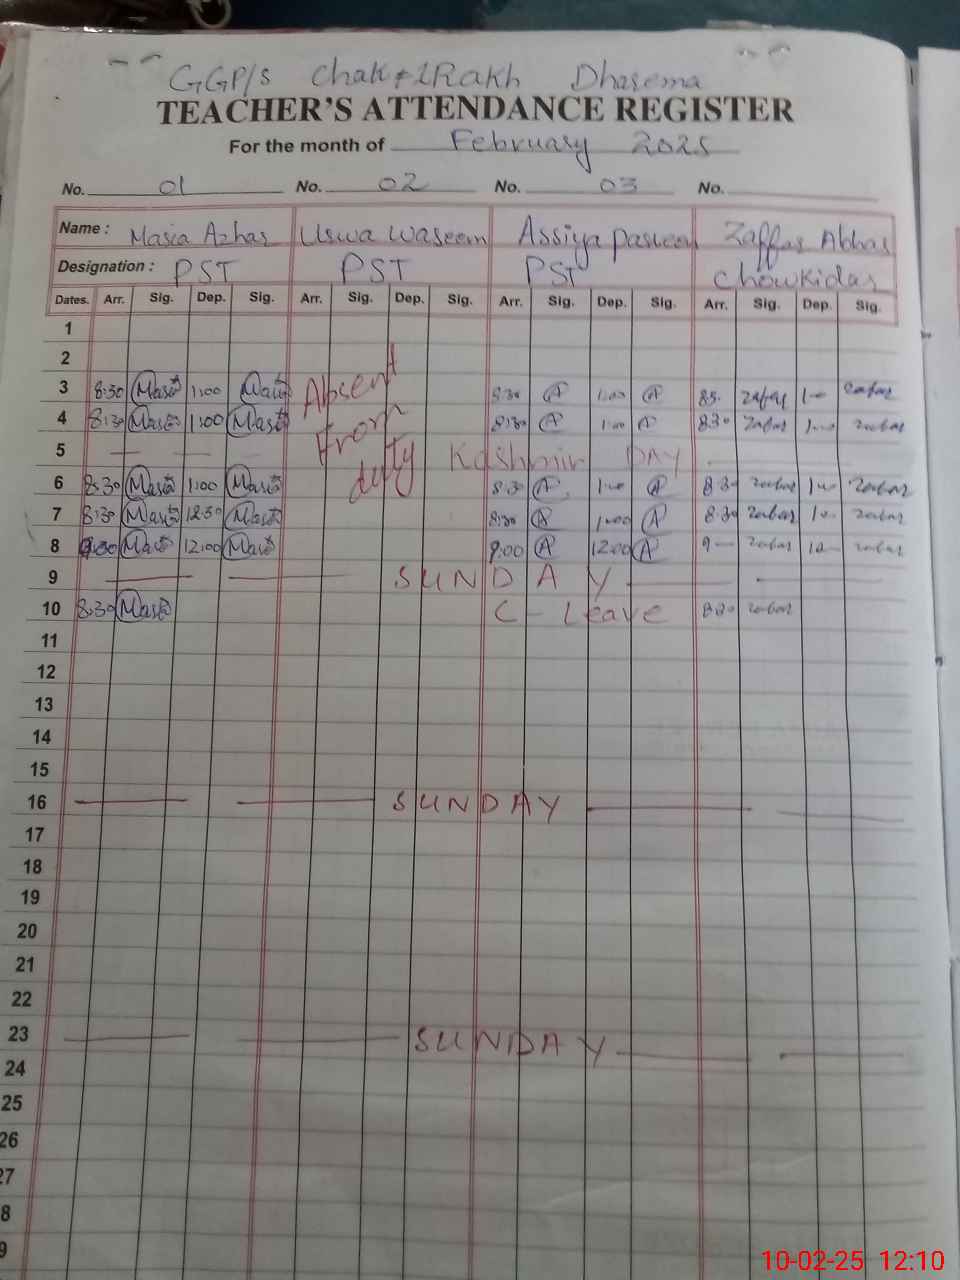 GGP/S Chak # 1 Rakh Dharema
TEACHER'S ATTENDANCE REGISTER
For the month of February 2025
No. 01 No. 02 No. 03 No.
Name : Maria Azhar Uswa Waseem Assiya Parveen Zaffar Abbas
Designation : PST PST PST Chowkidar
Dates. Arr. Sig. Dep. Sig. Arr. Sig. Dep. Sig. Arr. Sig. Dep. Sig. Arr. Sig. Dep. Sig.
1
2
Absent
3 8:30 Maria 1:00 Maria 8:30 A 1:00 A 8:30 zafar 1-- zafar
4 8:30 Maria 1:00 Maria From 8:30 A 1:00 A 830 zafar 1-- zafar
5 Kashmir DAY
6 8:30 Maria 1:00 Maria duty 8:30 A 1:00 A 8 30 zafar 1-- zafar
7 8:30 Maria 12:30 Maria 8:30 A 1:00 A 8 30 zafar 1-- zafar
8 9:30 Maria 12:00 Maria 9:00 A 12:00 A 9-- zafar 12-- zafar
9 SUNDAY
10 8:30 Maria C - Leave 8 30 zafar
11
12
13
14
15
16 SUNDAY
17
18
19
20
21
22
23 SUNDAY
24
25
26
27
8
9
10-02-25 12:10